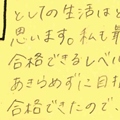 としての生活はと
思います。私も最
合格できるレベル
あきらめずに目指
合格できたので、